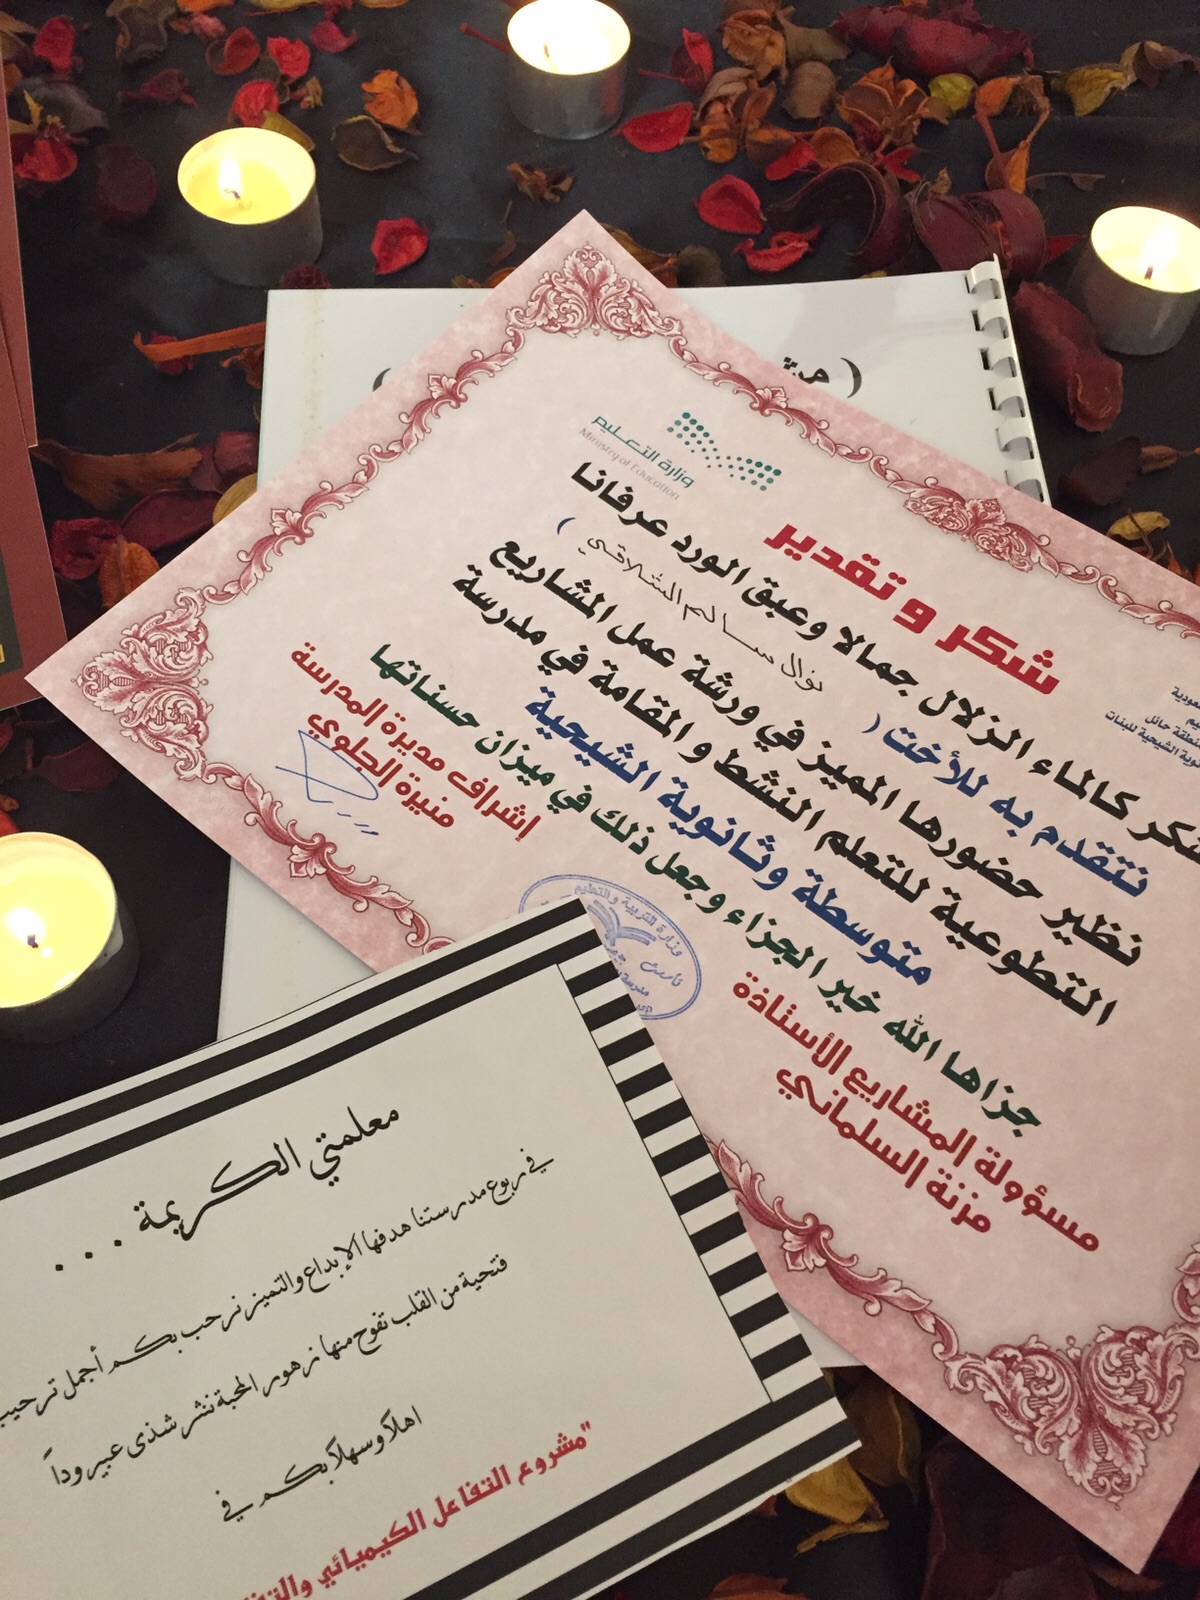 وزارة التعليم
Ministry of Education
شكر و تقدير
كالماء الزلال جمالا وعبق الورد عرفانا
نتقدم به للأخت ( نوال سالم الشلاقي )
نظير حضورها المميز في ورشة عمل المشاريع
التطوعية للتعلم النشط والمقامة في مدرسة
متوسطة وثانوية الشيحية
جزاها الله خير الجزاء وجعل ذلك في ميزان حسناتها
مسؤولة المشاريع الأستاذة
مزنة السلماني
إشراف مديرة المدرسة
منيرة الجلوي
وزارة التربية والتعليم
معلمتي الكريمة . . . .
في ربوع مدرستنا هدفها الإبداع والتميز نرحب بكم أجمل ترحيب
فتحية من القلب تفوح منها زهور المحبة نثر شذى عبير وداً
اهلاً وسهلاً بكم في
"مشروع التفاعل الكيميائي